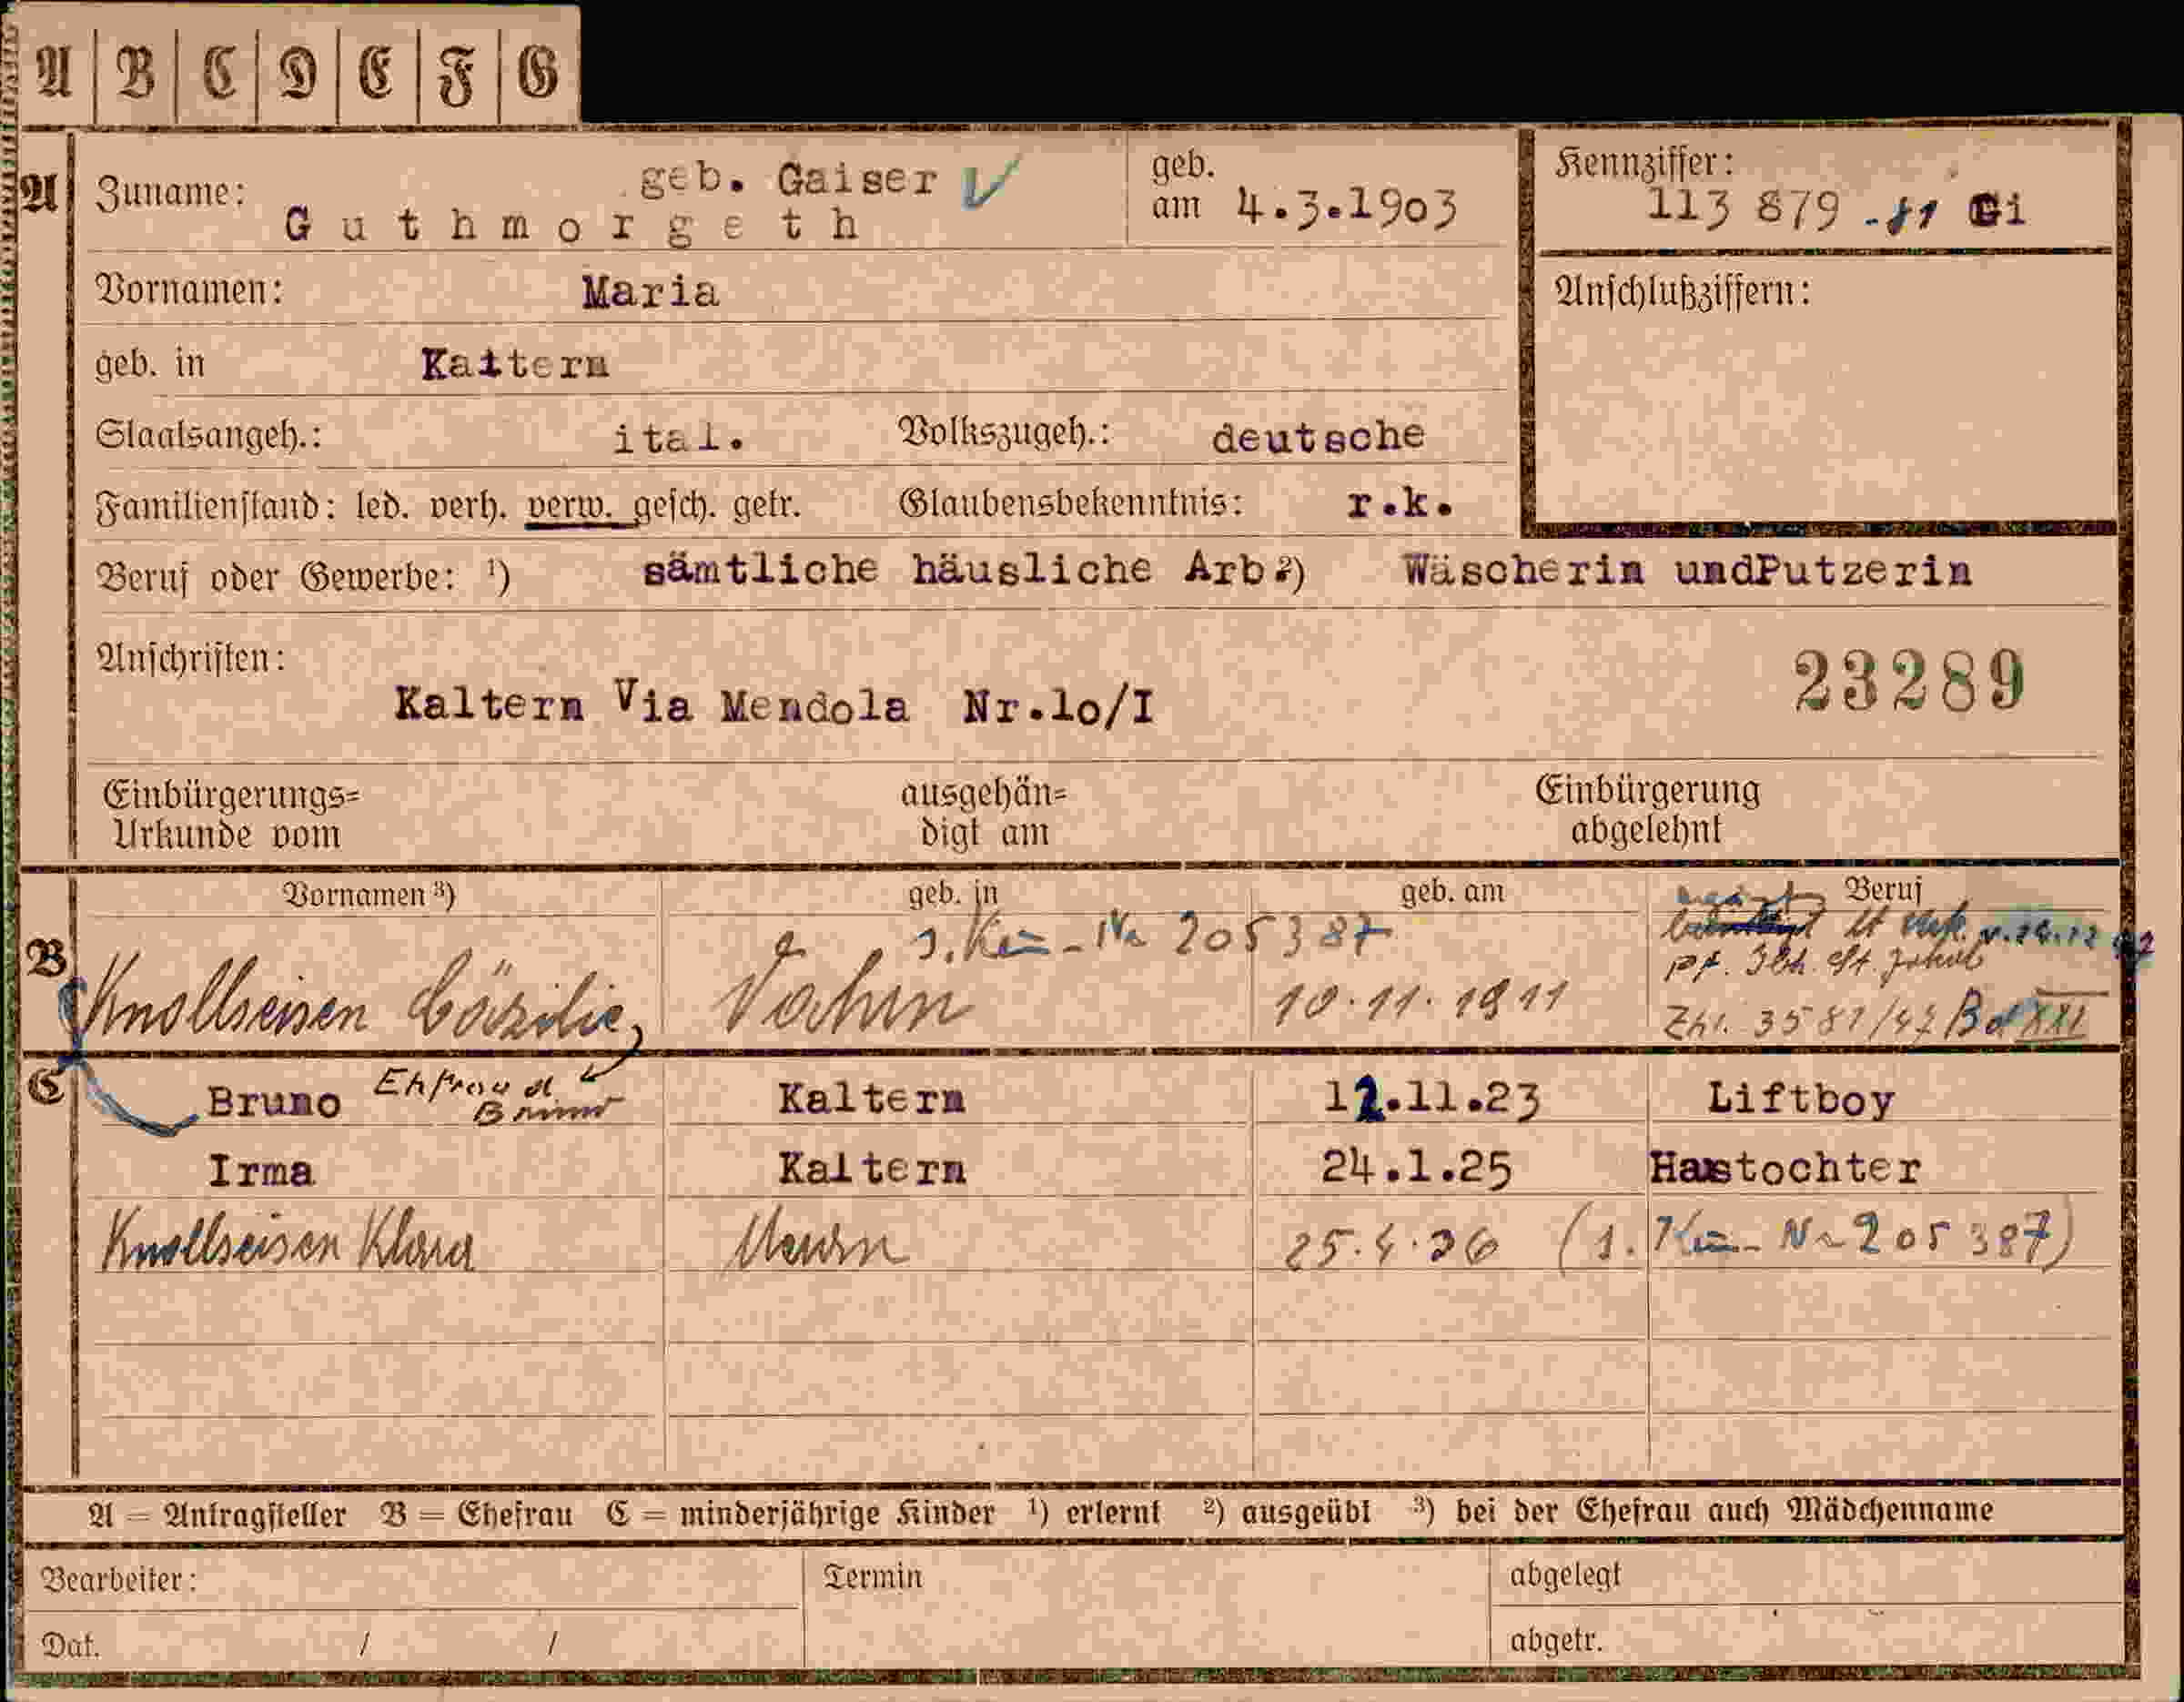 A B C D E F G
A
Zuname: geb. Gaiser
Guthmorgeth
geb. am 4.3.1903
Kennziffer:
113 879 Gi
Vornamen: Maria
Anschlußziffern:
geb. in Kaltern
Staatsangeh.: ital. Volkszugeh.: deutsche
Familienstand: led. verh. verw. gesch. getr. Glaubensbekenntnis: r.k.
Beruf oder Gewerbe: ¹) sämtliche häusliche Arb ²) Wäscherin undPutzerin
Anschriften:
23289
Kaltern Via Mendola Nr.lo/I
Einbürgerungs= ausgehän= Einbürgerung
Urkunde vom digt am abgelehnt
Vornamen ³) geb. in geb. am Beruf
205387
B
Knollseisen Cäzilie, 10.11.1911
3581/42 Bd XXI
C
Bruno Ehfrau d. Kaltern 12.11.23 Liftboy
Bruno
Irma Kaltern 24.1.25 Haustochter
Knollseisen Klara Meran 25.4.36 (s. Ken-Nr 205387)
A = Antragsteller B = Ehefrau C = minderjährige Kinder ¹) erlernt ²) ausgeübt ³) bei der Ehefrau auch Mädchenname
Bearbeiter: Termin abgelegt
Dat. / / abgetr.